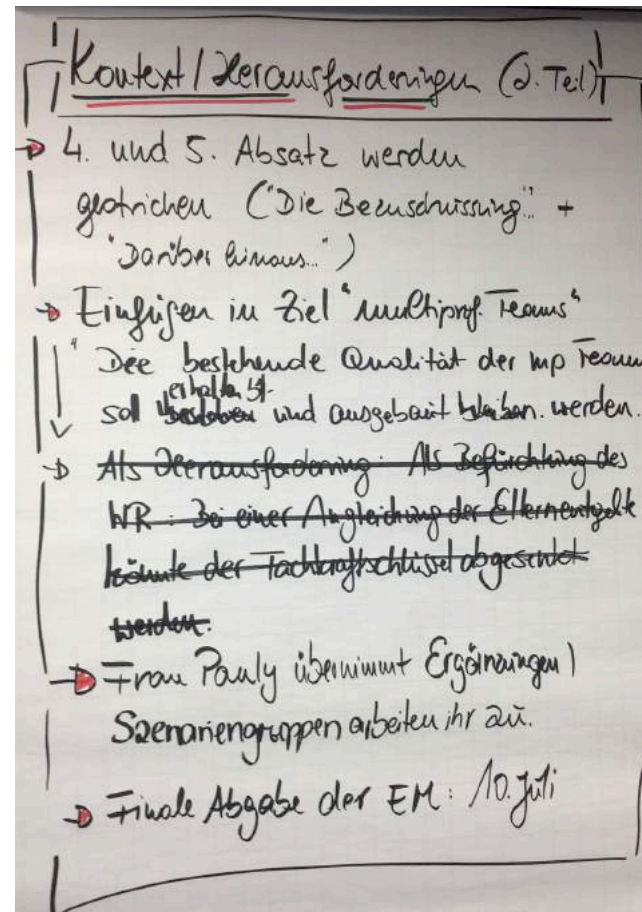 Kontext / Herausforderungen (2. Teil)
→ 4. und 5. Absatz werden
gestrichen ("Die Bezuschussung..." +
"Darüber hinaus...")
→ Einfügen in Ziel "multiprof. Teams"
"Die bestehende Qualität der mp Teams
erhalten
soll und ausgebaut bleiben. werden.
→ Als Herausforderung: Als Befürchtung des
WR: Bei einer Angleichung der Elternentgelte
könnte der Fachkraftschlüssel abgesenkt
werden.
→ Frau Pauly übernimmt Ergänzungen /
Szenariengruppen arbeiten ihr zu.
→ Finale Abgabe der EM: 10. Juli